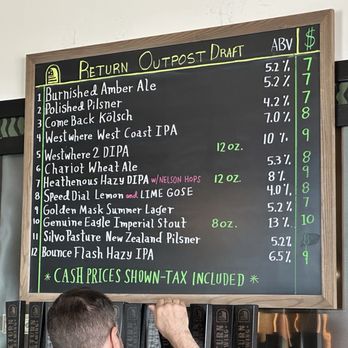 RETURN OUTPOST DRAFT ABV $
1 Burnished Amber Ale 5.2% 7
2 Polished Pilsner 5.2% 7
3 Come Back Kölsch 4.2% 7
4 Westwhere West Coast IPA 7.0% 8
5 Westwhere 2 DIPA 12 oz. 10% 9
6 Chariot Wheat Ale 5.3% 8
7 Heathenous Hazy DIPA w/ NELSON HOPS 12 oz. 8% 9
8 Speed Dial Lemon and LIME GOSE 4.0% 8
9 Golden Mask Summer Lager 5.2% 7
10 Genuine Eagle Imperial Stout 8 oz. 13% 10
11 Silvo Pasture New Zealand Pilsner 5.2%
12 Bounce Flash Hazy IPA 6.5% 9
* CASH PRICES SHOWN-TAX INCLUDED *
RETURN
RETURN